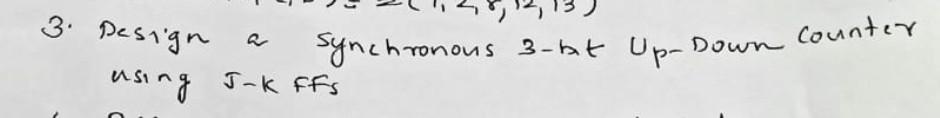 1, 2, 8, 12, 13)
3. Design a Synchronous 3-bit Up-Down Counter
using J-K FFs